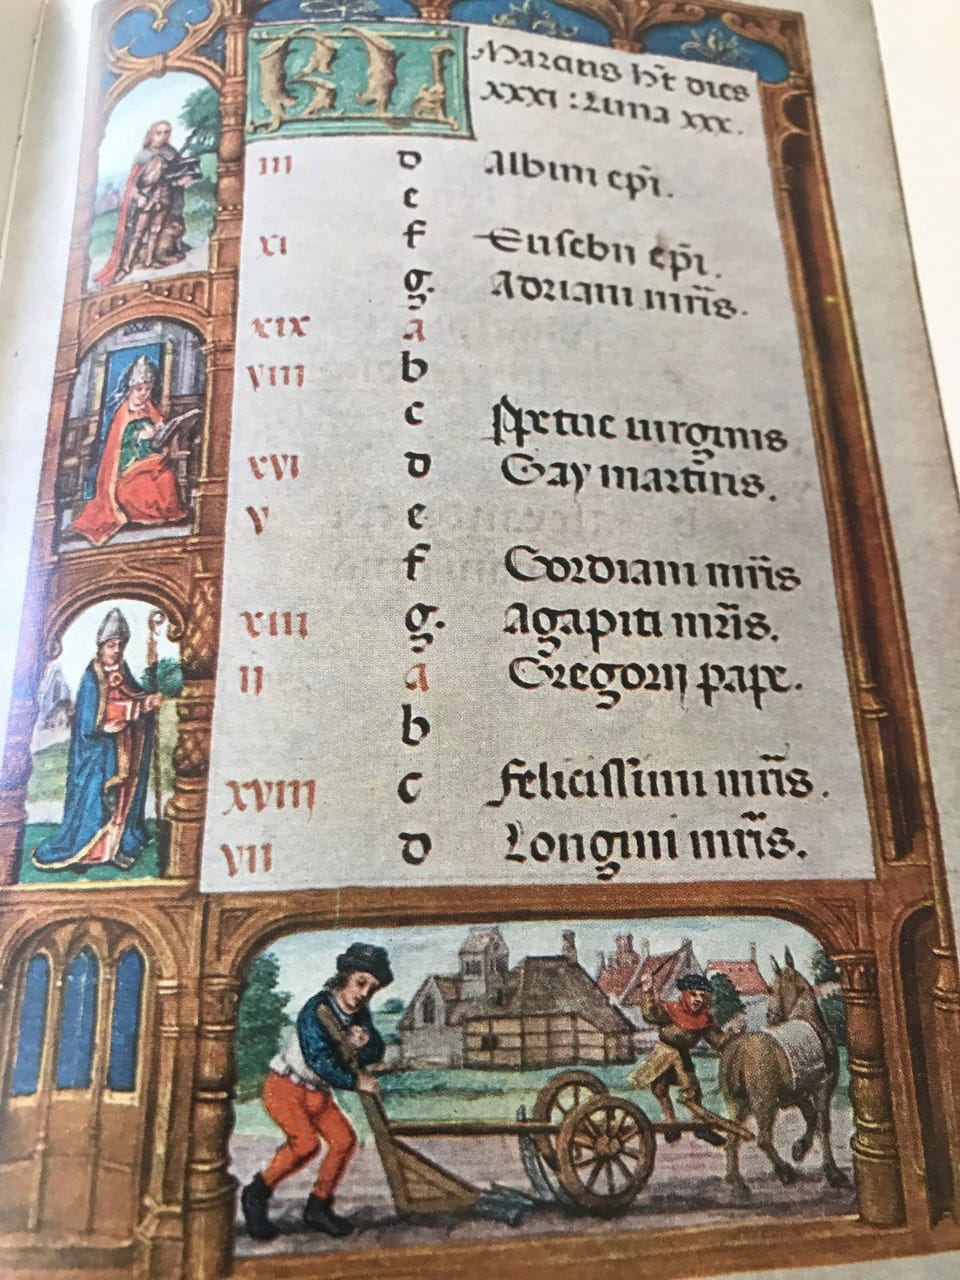 KL Marcius h̄t dies
xxxi : Luna xxx.
iii d Albini ep̄i.
e
xi f Eusebii ep̄i.
g. Adriani mr̄is.
xix a
viii b
c Perpetue uirginis
xvi d
v e
f Gordiani mr̄is
xiii g. Agapiti mr̄is.
ii a Gregorij pape.
b
xviii c felicissimi mr̄is.
vii d Longini mr̄is.